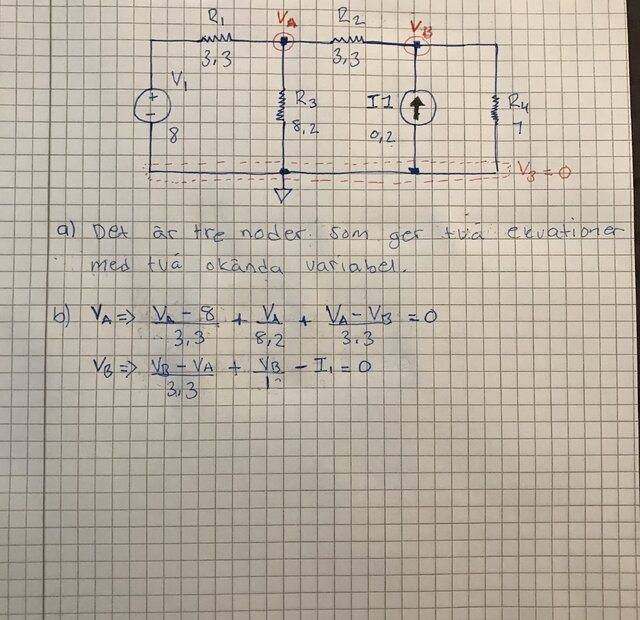 R1 VA R2 VB
3,3 3,3
V1 R3 I1 R4
8 8,2 0,2 1
V3 = 0
a) Det är tre noder som ger två ekvationer
med två okända variabel.
b) VA => VA - 8 / 3,3 + VA / 8,2 + VA - VB / 3.3 = 0
VB => VB - VA / 3,3 + VB / 1 - I1 = 0